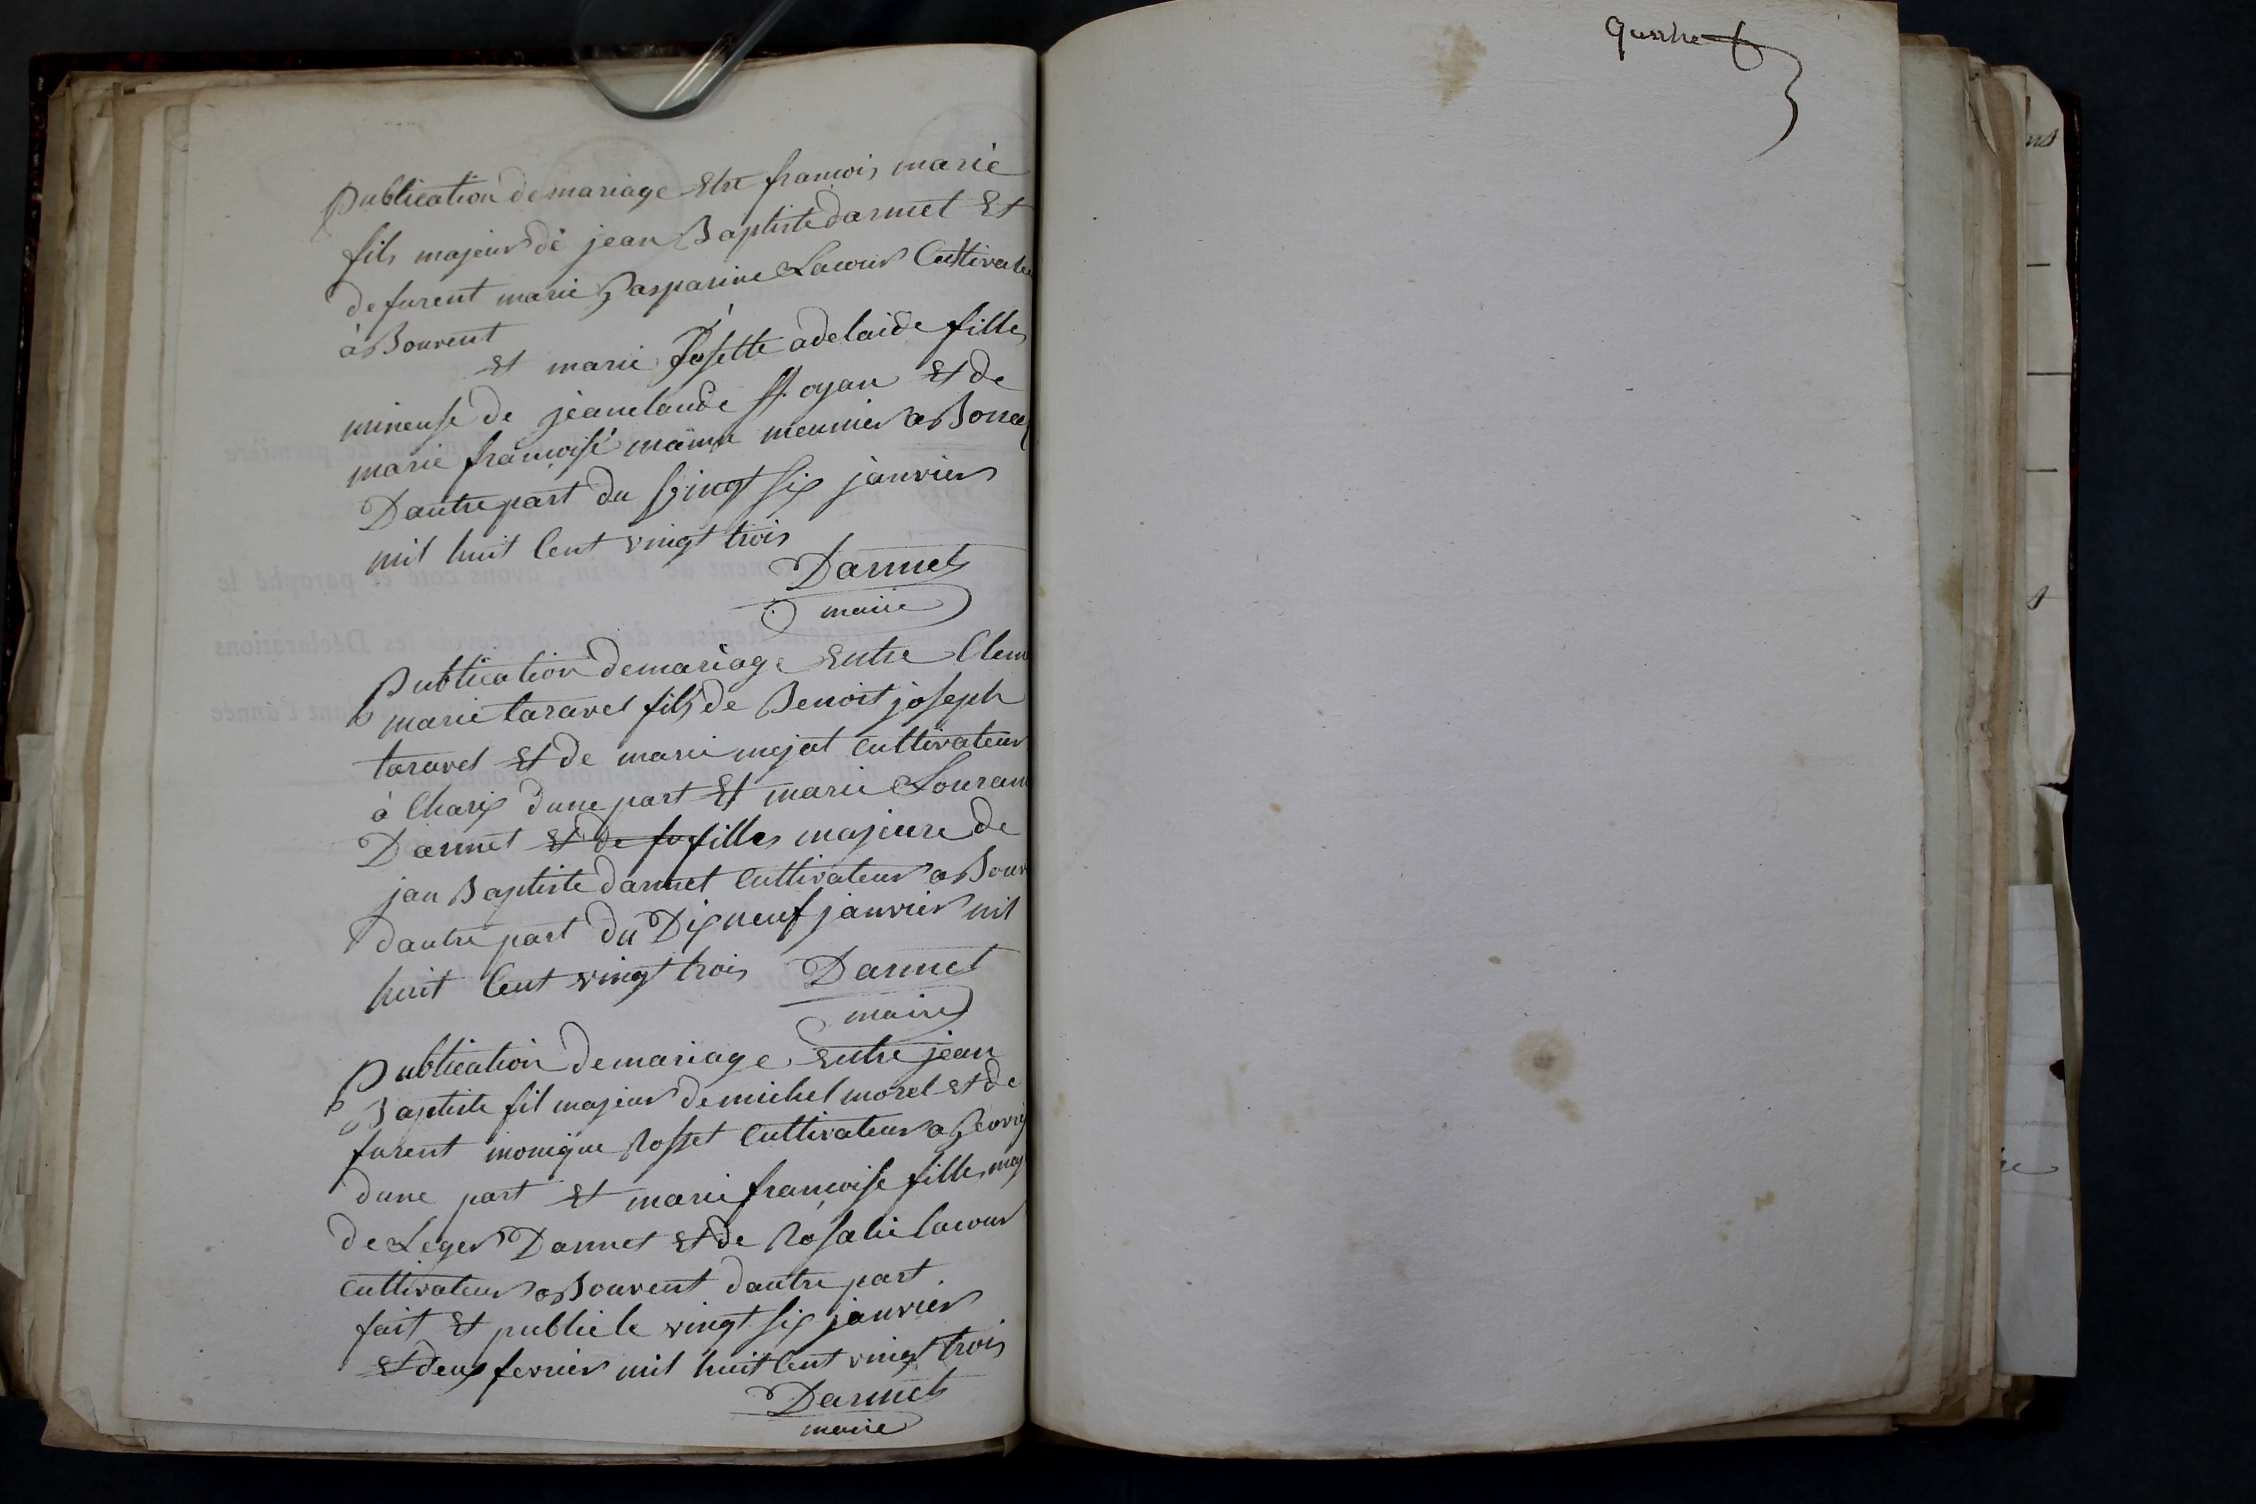 Publication de mariage Etre francois marie
fils majeur de jean Baptiste darmet Et
defurent marie Gasparine Lacour Cultivate
à Bouvent
Et marie Josette adelaide fille
mineuse de jean claude oyan Et de
marie françoise meunier a
Dautre part du vingt six janvier
mil huit Cent vingt trois
Darmet
maire
Publication de mariage Entre Clem
marie taravel fils de Benoit joseph
taravel Et de marie mejat cultivateur
à Charix dune part Et marie Louran
Darmet Et de fu fille majeure de
jan Baptiste darmet Cultivateur a Bouv
dautre part du Dix neuf janvier mil
huit Cent vingt trois Darmet
maire
Publication de mariage Entre jean
Baptiste fil majeur de michel morel Et de
furent monique Rosset Cultivateur a Geovrei
dune part Et marie françoise fille maj
de Leger Darmet Et de Rosalie lacour
Cultivateur a Bouvent dautre part
fait Et publié le vingt six janvier
Et deux fevrier mil huit Cent vingt trois
Darmet
maire